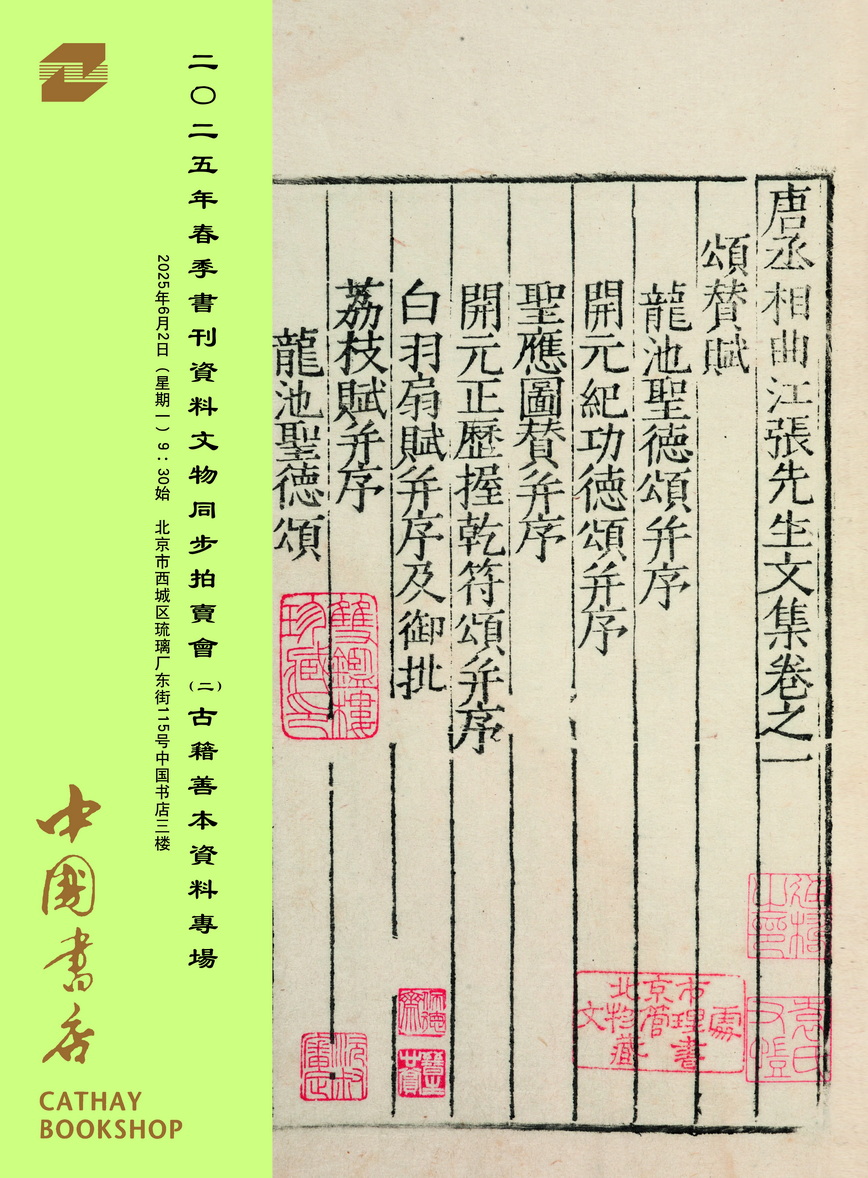 二〇二五年春季書刊資料文物同步拍賣會（二）古籍善本資料專場
2025年6月2日（星期一）9：30始　北京市西城区琉璃厂东街115号中国书店三楼
中國書店
CATHAY
BOOKSHOP
唐丞相曲江張先生文集卷之一
頌賛賦
龍池聖德頌并序
開元紀功德頌并序
聖應圖賛并序
開元正歷握乾符頌并序
白羽扇賦并序及御批
荔枝賦并序
龍池聖德頌
雙鑑樓
珍藏印
北京市
文物管理處
藏書